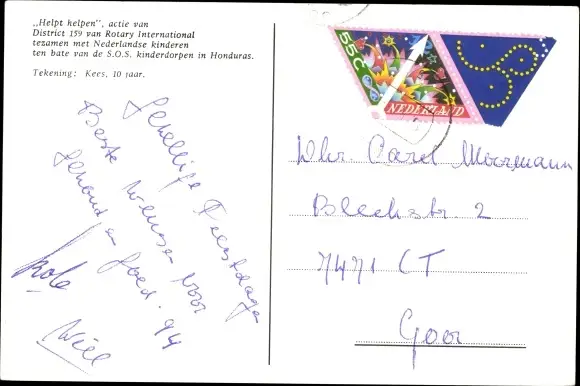 „Helpt helpen", actie van
District 159 van Rotary International
tezamen met Nederlandse kinderen
ten bate van de S.O.S. kinderdorpen in Honduras.
Tekening: Kees, 10 jaar.
Gezellige Feestdagen
Beste Wensen voor
Gezond en Goed. 94
Will
55c
NEDERLAND
Dhr Carel Moormann
Bleekstr. 2
7471 CT
Goor